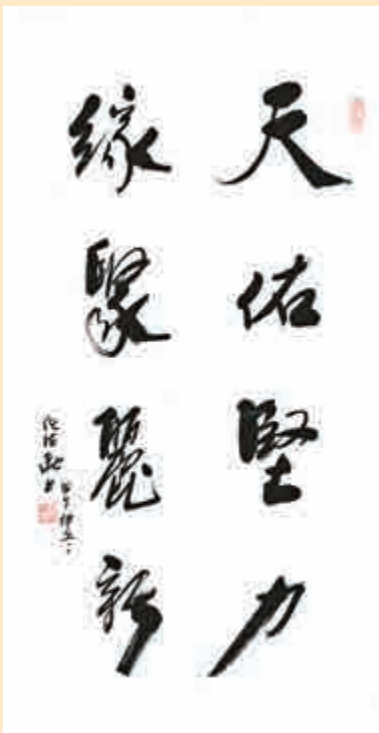 天佑堅力
緣聚麗新